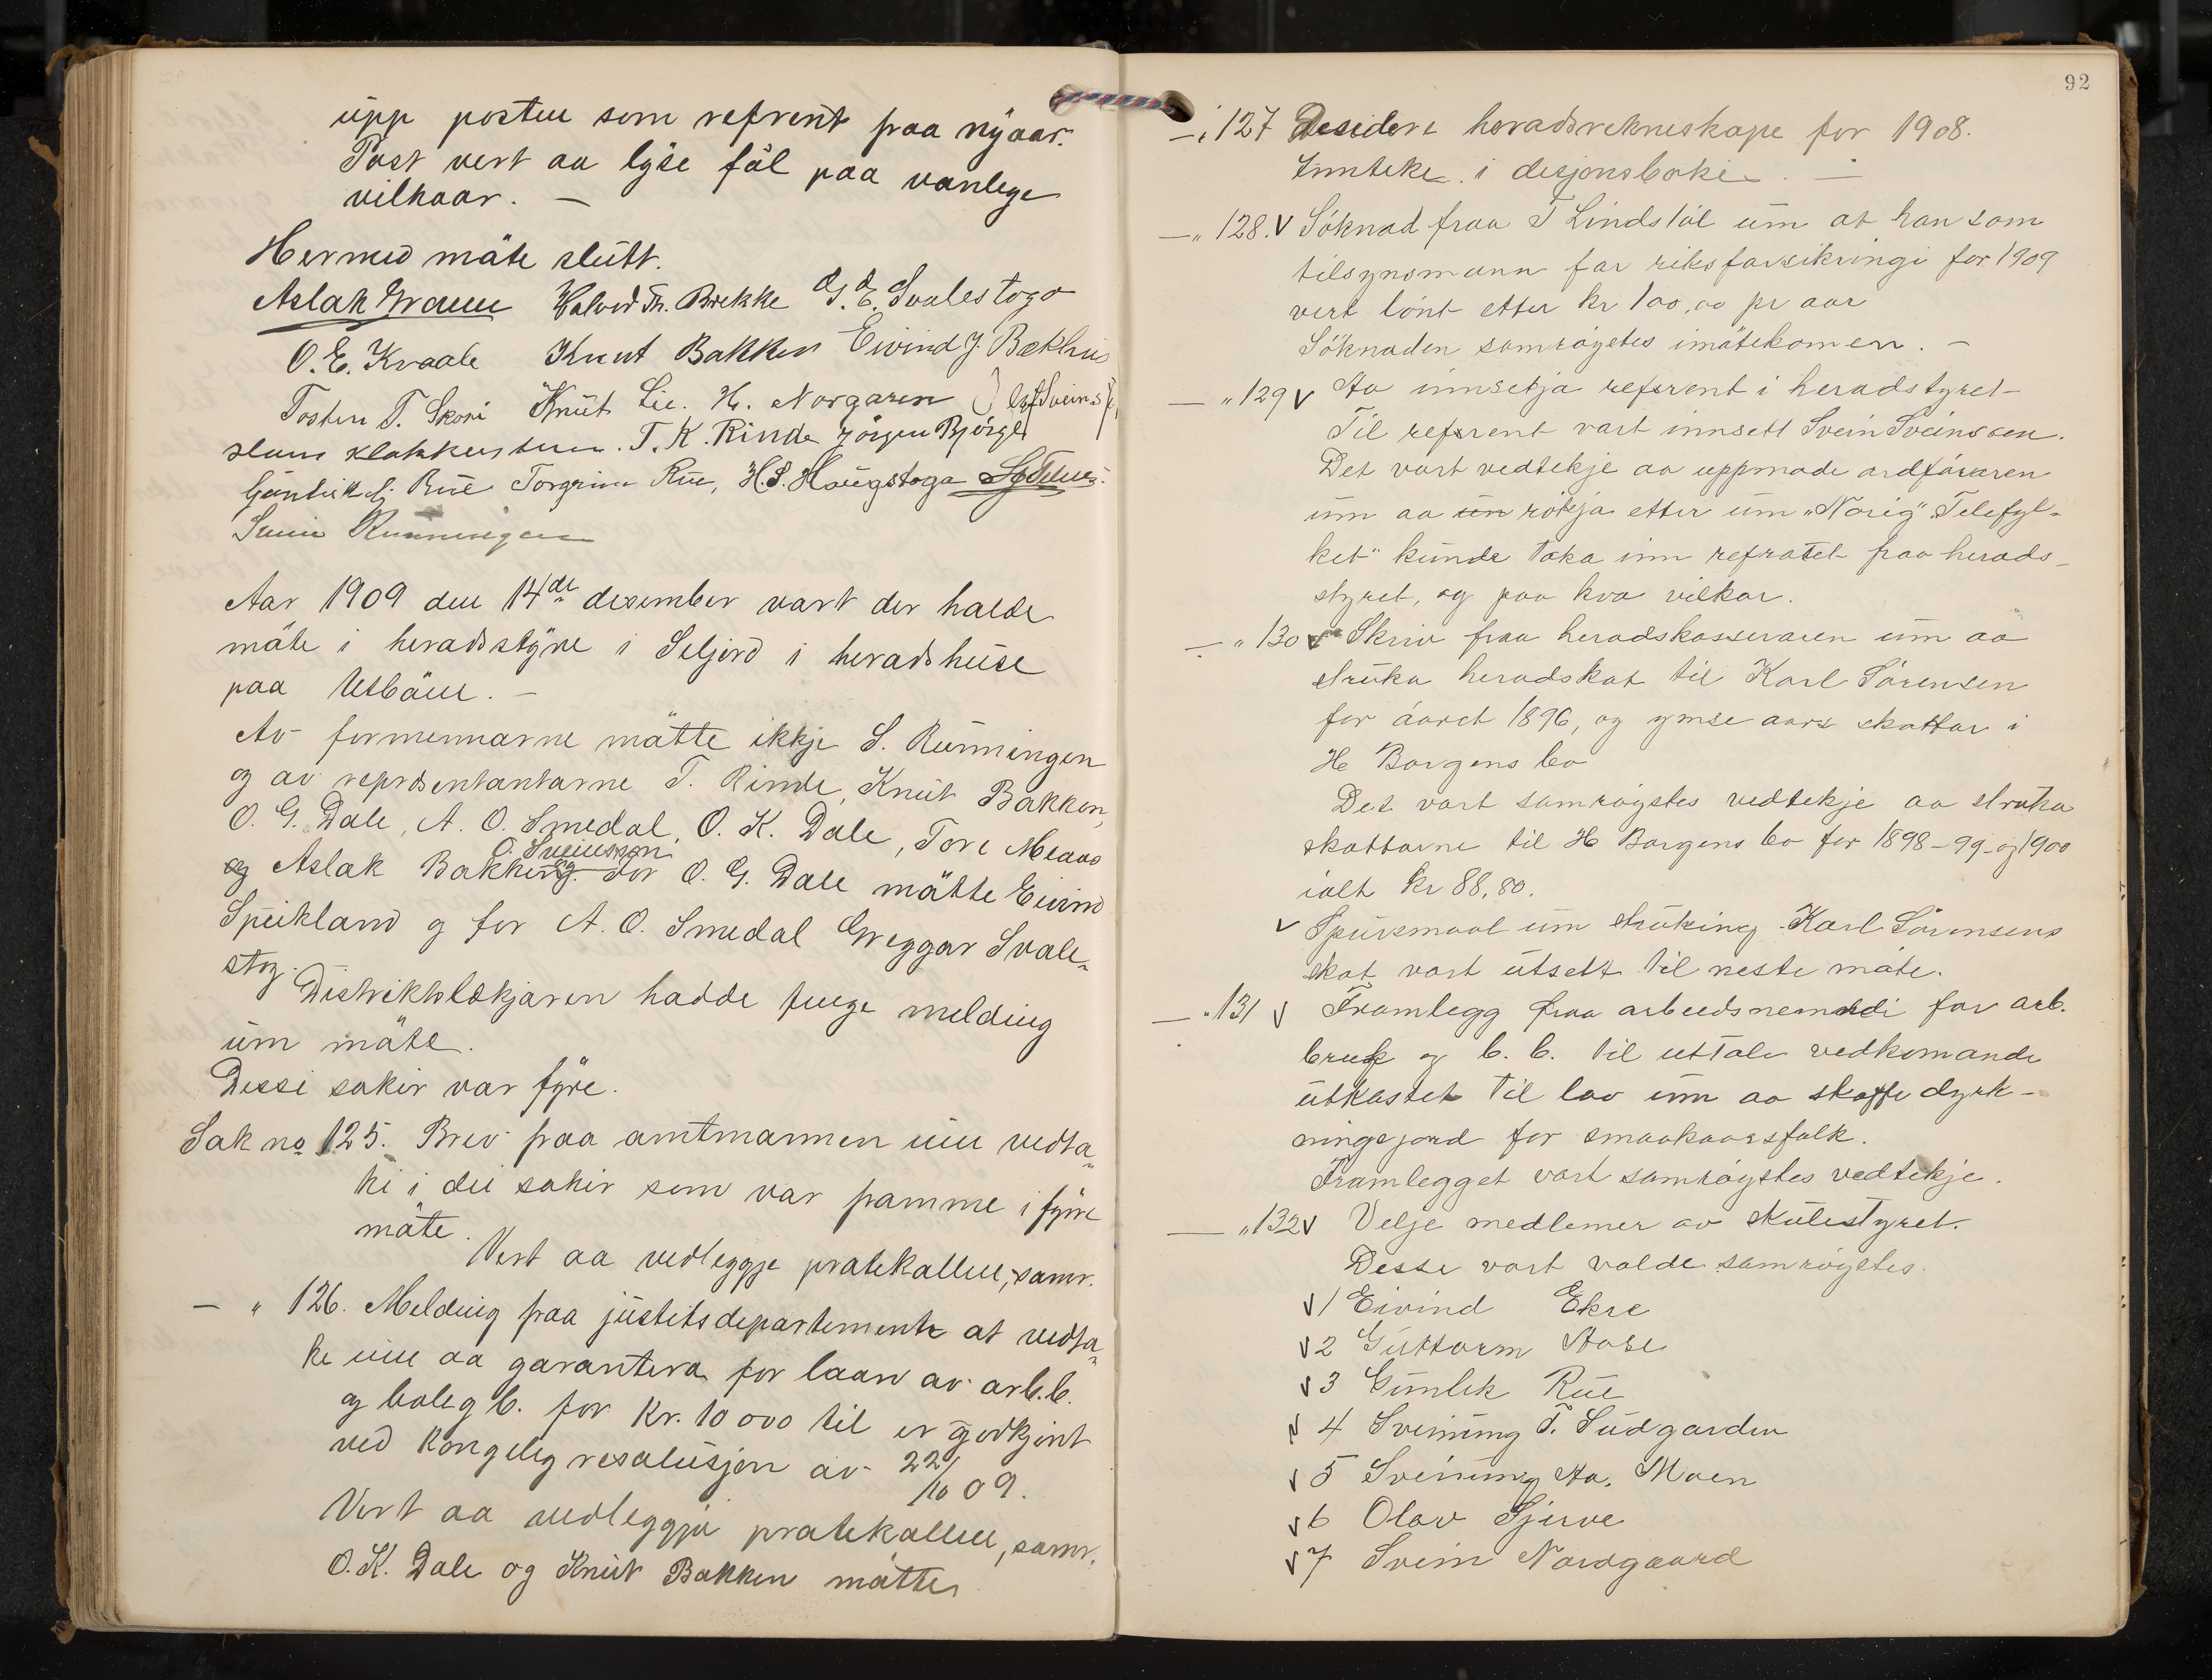 upp posten som refrent fraa nyaar.
Post vert aa lyse fäl paa vanlege
vilkaar. —
Hermed mäte slutt.
Aslak Graun Halvor Th. Brekke G. E. Svalestogo
O. E. Kvaale Knut Bakken Eivind J. Bekhus
Tosten T. Skori Knut Lie. H. Norgaren Olaf Sveins
T. K. Rinde Jörgen Björge
Gunleik Rue Torgrim Rue, H. S. Haugstoga
Svein Runningen
Aar 1909 den 14de desember vart der halde
mäte i heradsstyre i Seljord i heradshuse
paa Utbäen. —
Av formennarne mätte ikkje S. Runningen
og av represdentantarne T. Rinde, Knut Bakken,
O. G. Dale, A. O. Smedal, O. K. Dale, Tore Meaas
O. Sveinsson
og Aslak Bakken og for O. G. Dale mätte Eivind
Speikland og for A. O. Smedal Greggar Svale-
stog.
Distriktslækjaren hadde funge melding
um mäte.
Dessi sakir var fyre.
Sak no 125. Brev fraa amtmannen um vedta-
ki i dei sakir som var framme i fyrre
mäte.
Vert aa vedleggje protekallen, samr.
— " 126. Melding fraa justitsdepartemente at vedta-
ke um aa garantera for laan av arb.b.
og bolig b. for Kr. 10 000 til er godkjent
ved kongeleg resolusjon av 22/10 09.
Vert aa vedleggja protekallen, samr.
O. K. Dale og Knut Bakken mätte
92
— " 127 Desidere heradsrekneskape for 1908.
Innteke i desjonsboki. —
— " 128. V Söknad fraa T Lindstöl um at han som
tilsynsmann for riksforsikringi for 1909
vert lönt etter kr 100,00 pr aar
Söknaden samröystes imötekomen. —
— " 129 V Aa innsetja referent i heradstyret
Til refsrent vart innsett Svein Sveinssen.
Det vart vedtekje aa uppmode ordföraren
um aa un rökja etter um „Norig" „Telefyl-
ket" kunde taka inn refratet fraa herads-
styret, og paa kva vilkar.
— " 130 V Skriv fraa heradskasseraren um aa
struka heradskat til Karl Sörensen
for äaret 1896, og ymse aars skattar i
H Borgens bo
Det vart samröystes vedtekje aa struka
skattarne til H Borgens bo for 1898-99-og 1900
ialt kr 88,80.
V Spursmaal um struking Karl Sörensens
skat vart utsett til neste mäte.
— " 131 V Framlegg fraa arbeidsnemndi for arb.
bruk og b. b. til uttale vedkomande
utkastet til lov um aa skaffe dyrk-
ningsjord for smaakaarsfolk.
Framlegget vart samröystes vedtekje.
— " 132 V Velje medlemer av skulestyret.
Desse vart valde samröystes.
V 1 Eivind Ekre
V 2 Guttorm Aase
V 3 Gunlek Rue
V 4 Sveinung T. Sudgarden
V 5 Sveinung Aa. Moen
V 6 Olav Gjerve
V 7 Svein Nordgaard